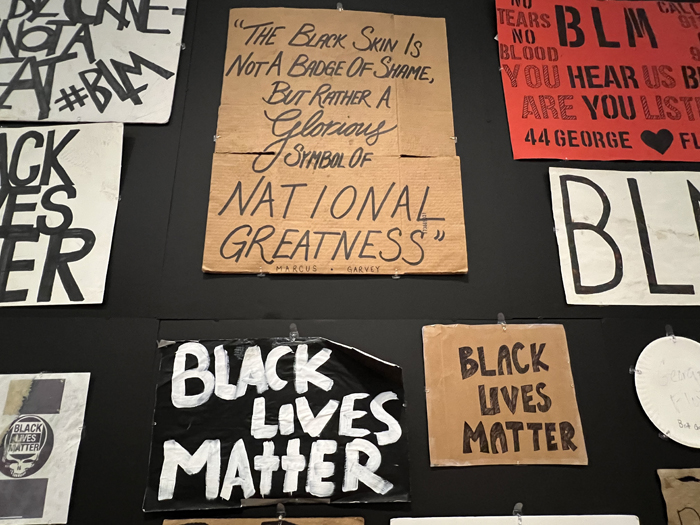 NOT A
#BLM
"THE BLACK SKIN IS
NOT A BADGE OF SHAME,
BUT RATHER A
Glorious
SYMBOL OF
NATIONAL
GREATNESS"
MARCUS • GARVEY
NO
TEARS
NO
BLOOD
BLM
YOU HEAR US B
ARE YOU LIST
44 GEORGE ♥ FL
ACK
VES
ER
BL
BLACK
LIVES
MATTER
BLACK
LIVES
MATTER
BLACK
LIVES
MATTER